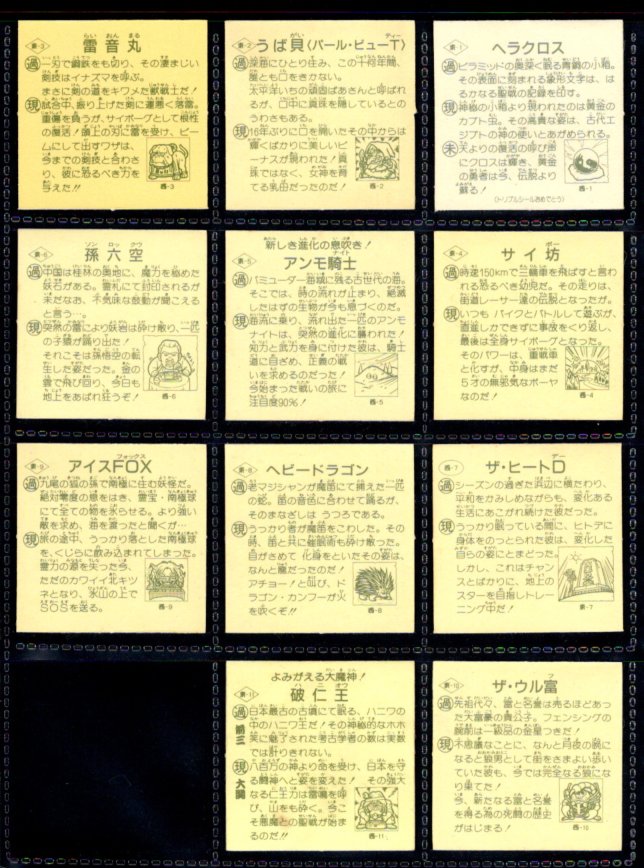 東-3
雷音丸
らい おん まる
過 一刃で鋼鉄をも切り、その凄まじい
剣技はイナズマを呼ぶ。
まさに剣の道をキワメた獣戦士だ!
現 試合中、振り上げた剣に運悪く落雷。
重傷を負うが、サイボーグとして根性
の復活!頭上の刃に雷を受け、ビー
ムにして出すワザは、
今までの剣技と合わさ
り、彼に恐るべき力を
与えた!!
西-3
東-2
うば貝〈パール・ビューT〉
過 深海にひとり住み、この千何年間、
誰とも口をきかない。
太平洋いちの頑固ばあさんと呼ばれ
るが、口中に真珠を隠しているとの
うわさもある。
現 16年ぶりに口を開いたその中からは
輝くばかりに美しいビ
ーナスが現われた!真
珠ではなく、女神を育
てる乳母だったのだ!
西-2
東-1
ヘラクロス
過 ピラミッドの奥深く眠る青銅の小箱。
その表面に刻まれた象形文字は、は
るかなる聖戦の記録を印す。
現 神秘の小箱より現われたのは黄金の
カブト虫。その高貴な姿は、古代エ
ジプトの神の使いとあがめられる。
未 天よりの復活の呼び声
にクロスは輝き、黄金
の勇者は今、伝説より
蘇る!
西-1
(トリプルシールおめでとう)
東-6
孫六空
ソン ロッ クウ
過 中国は桂林の奥地に、魔力を秘めた
妖石がある。霊札にて封印されるが
未だなお、不気味な鼓動が聞こえる
と言う…。
現 突然の雷により妖岩は砕け散り、一匹
の子猿が踊り出た!
それこそは孫悟空の転
生した姿だった。金の
雲で飛び回り、今日も
地上をあばれ狂うぞ!
西-6
新しき進化の息吹き!
東-5
アンモ騎士
ナイト
過 バミューダー海域に残る古世代の海。
そこでは、時の流れが止まり、絶滅
したはずの生物が今も息づくのだ。
現 海流に乗り、流れ出た一匹のアンモ
ナイトは、突然の進化に襲われた!
知力と武力を身に付けた彼は、騎士
道に目ざめ、正義の戦
いを求めるのだった!
今始まった戦いの旅に
注目度90%!
西-5
東-4
サイ坊
ボー
過 時速150kmで三輪車を飛ばすと言わ
れる恐るべき幼児だ。その走りは、
街道レーサー達の伝説となったが。
現 いつもバイクとバトルして遊ぶが、
直進しかできずに事故をくり返し、
最後は全身サイボーグとなった。
そのパワーは、重戦車
と化すが、中身はまだ
5才の無邪気なボーヤ
なのだ!
西-4
東-9
アイスFOX
フォックス
過 九尾の狐の孫で南極に住む妖怪だ。
絶対零度の息をはき、霊宝・南極球
にて全ての物を氷らせる。より強い
敵を求め、海を渡ったと聞くが…
現 旅の途中、うっかり落とした南極球
を、くじらに飲み込まれてしまった。
霊力の源を失った今、
ただのカワイイ北キツ
ネとなり、氷山の上で
SOSを送る。
西-9
東-8
ヘビードラゴン
過 老マジシャンが魔笛にて捕えた一匹
の蛇。笛の音色に合わせて踊るが、
そのまなざしは うつろである。
現 うっかり者が魔笛をこわした。その
時、笛と共に催眠術も砕け散った。
目がさめて化身をといたその姿は、
なんと龍だったのだ!
アチョー!と叫び、ド
ラゴン・カンフーが火
を吹くぞ!!
西-8
西-7
ザ・ヒートD
デー
過 シーズンの過ぎた浜辺に横たわり、
平和をかみしめながらも、変化ある
生活にあこがれ続けた彼だった。
現 うっかり眠っている間に、ヒトデに
身体をのっとられた彼は、変化した
自らの姿にとまどった。
しかし、これはチャン
スとばかりに、地上の
スターを目指しトレー
ニング中だ!
東-7
よみがえる大魔神!
東-11
破仁王
ハ ニ オウ
過 日本最古の古墳にて眠る、ハニワの
中のハニワ王だ!その神秘的なホホ
笑に魅了された考古学者の数は実数
では計りきれない。
前三
現 八百万の神より命を受け、日本を守
る闘神へと姿を変えた! その強大
なる仁王力は雷鳴を呼
び、山をも砕く。今こ
そ悪魔との聖戦が始ま
るのだ!!
大関
西-11
東-10
ザ・ウル富
過 先祖代々、富と名誉は売るほどあっ
た大富豪の貴公子。フェンシングの
腕前は一級品の金星つきだ!
現 不思議なことに、なんと月夜の晩に
なると狼男として街をさまよい歩い
ていた彼も、今では完全なる狼にな
り果てた!
今、新たなる富と名誉
を得る為の死闘の歴史
がはじまる!
西-10